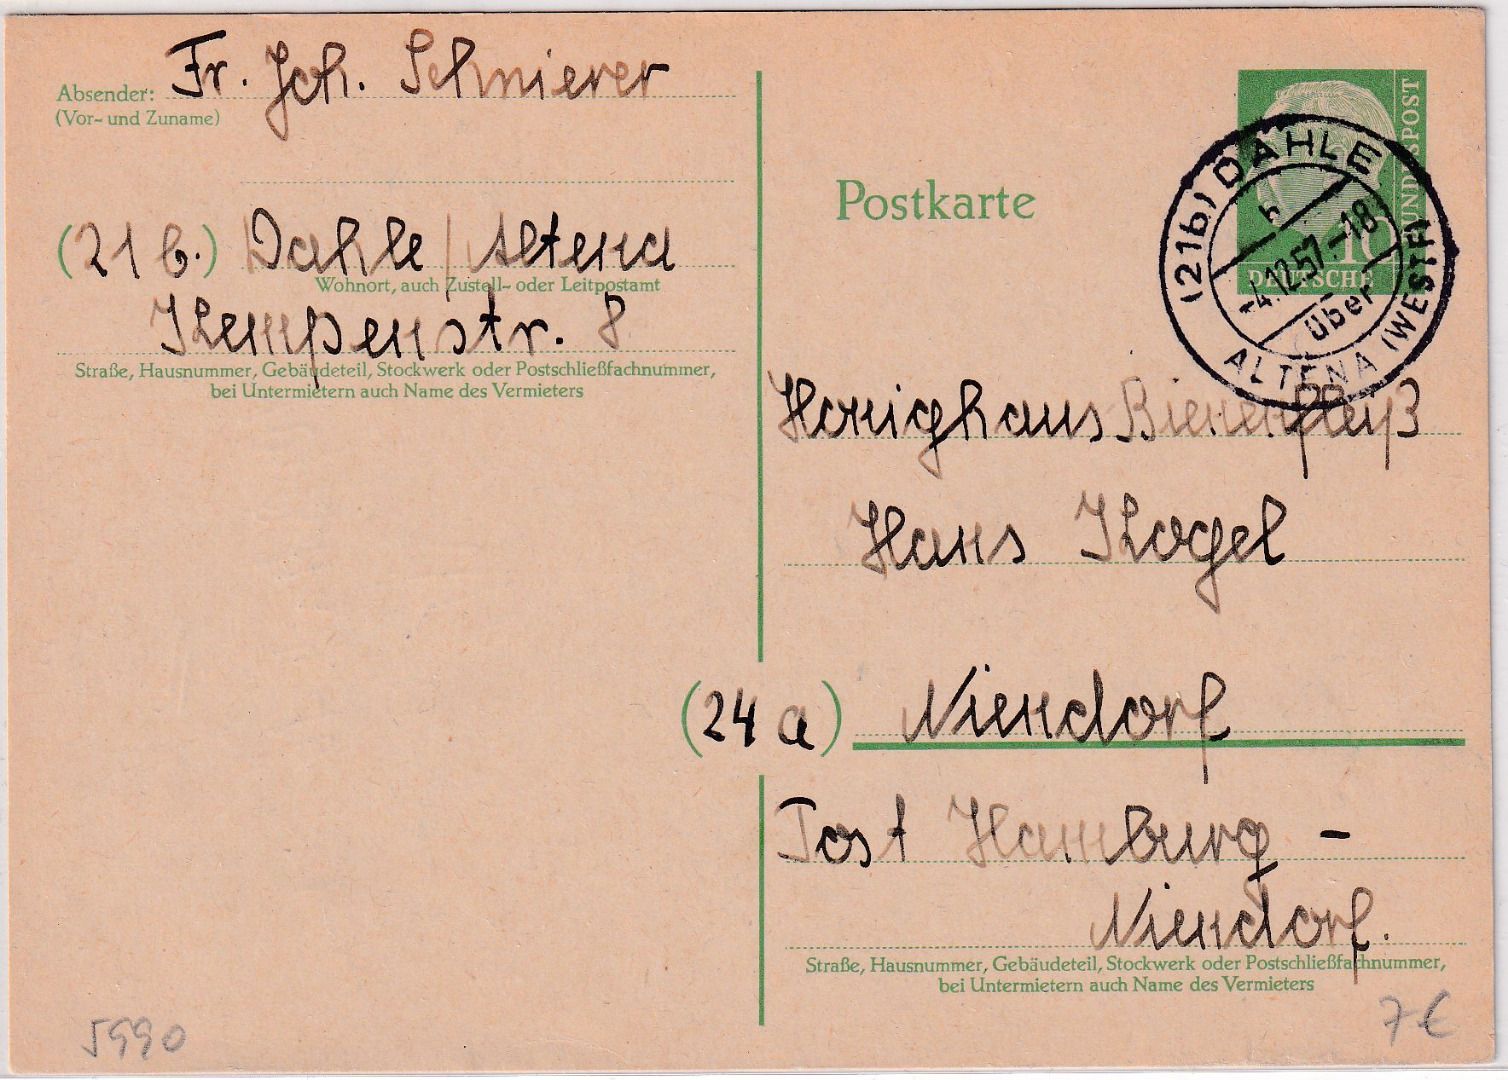 Absender: Fr. Joh. Schnierer
(Vor- und Zuname)
(21 b.) Dahle / Altena
Wohnort, auch Zustell- oder Leitpostamt
Kempenstr. 8
Straße, Hausnummer, Gebäudeteil, Stockwerk oder Postschließfachnummer,
bei Untermietern auch Name des Vermieters
Postkarte
DEUTSCHE BUNDESPOST
10
(21b) DAHLE
h
-4.12.57.-18
über
ALTENA (WESTF)
Honighaus Bienenfleiß
Hans Kogel
(24 a) Niendorf
Post Hamburg -
Niendorf.
Straße, Hausnummer, Gebäudeteil, Stockwerk oder Postschließfachnummer,
bei Untermietern auch Name des Vermieters
5990
7 €